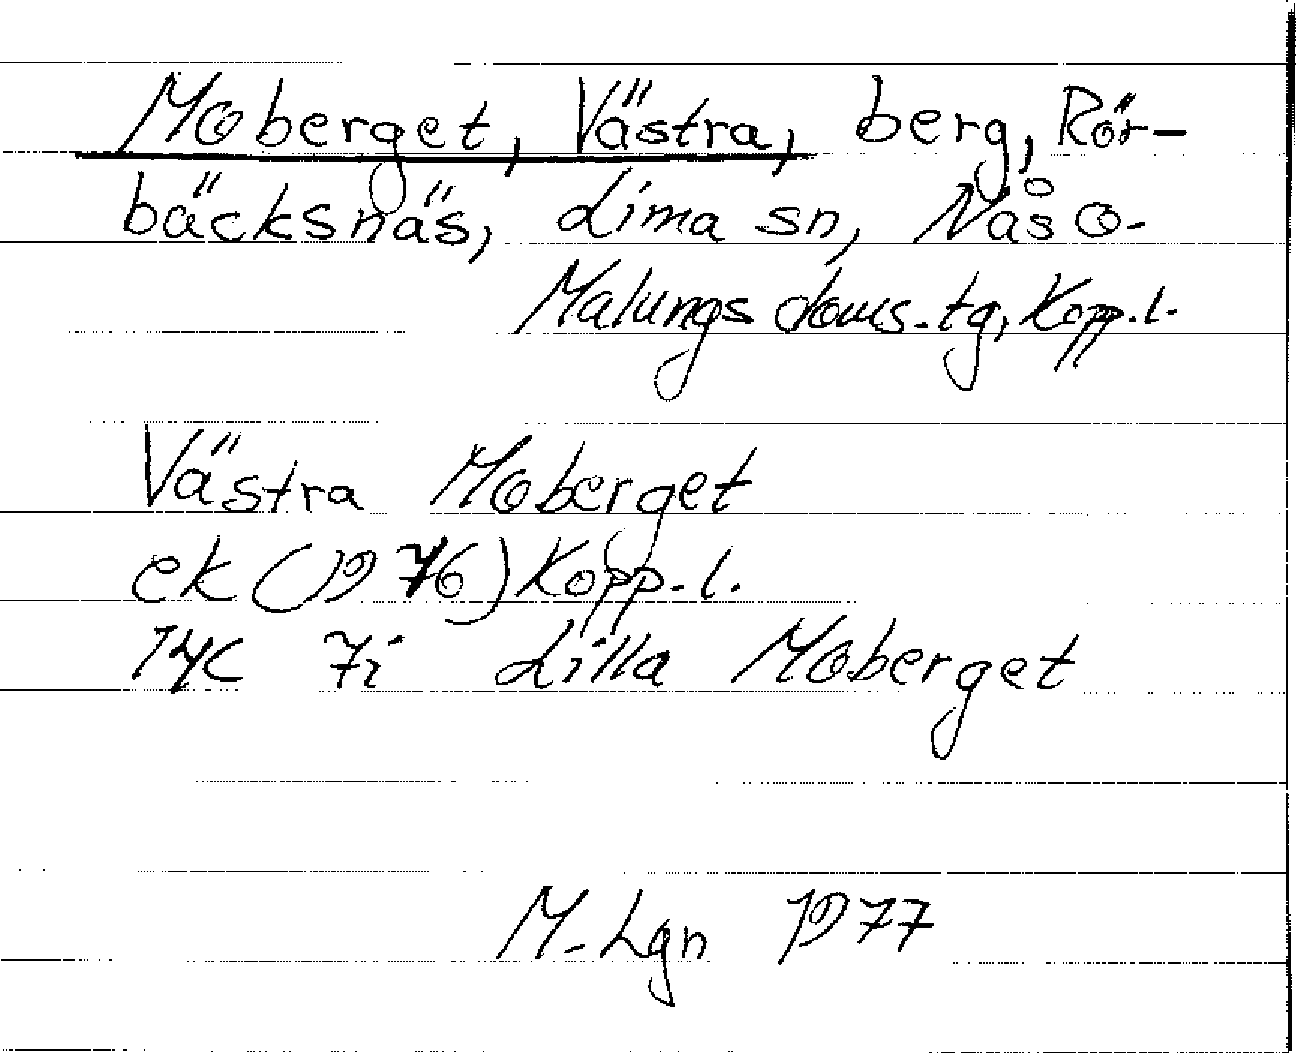 Moberget, Västra, berg, Rör-
bäcksnäs, Lima sn, Nås o.
Malungs doms.tg, Kopp.l.
Västra Moberget
ek (1976) Kopp.l.
14C 7i Lilla Moberget
M-Lgn 1977